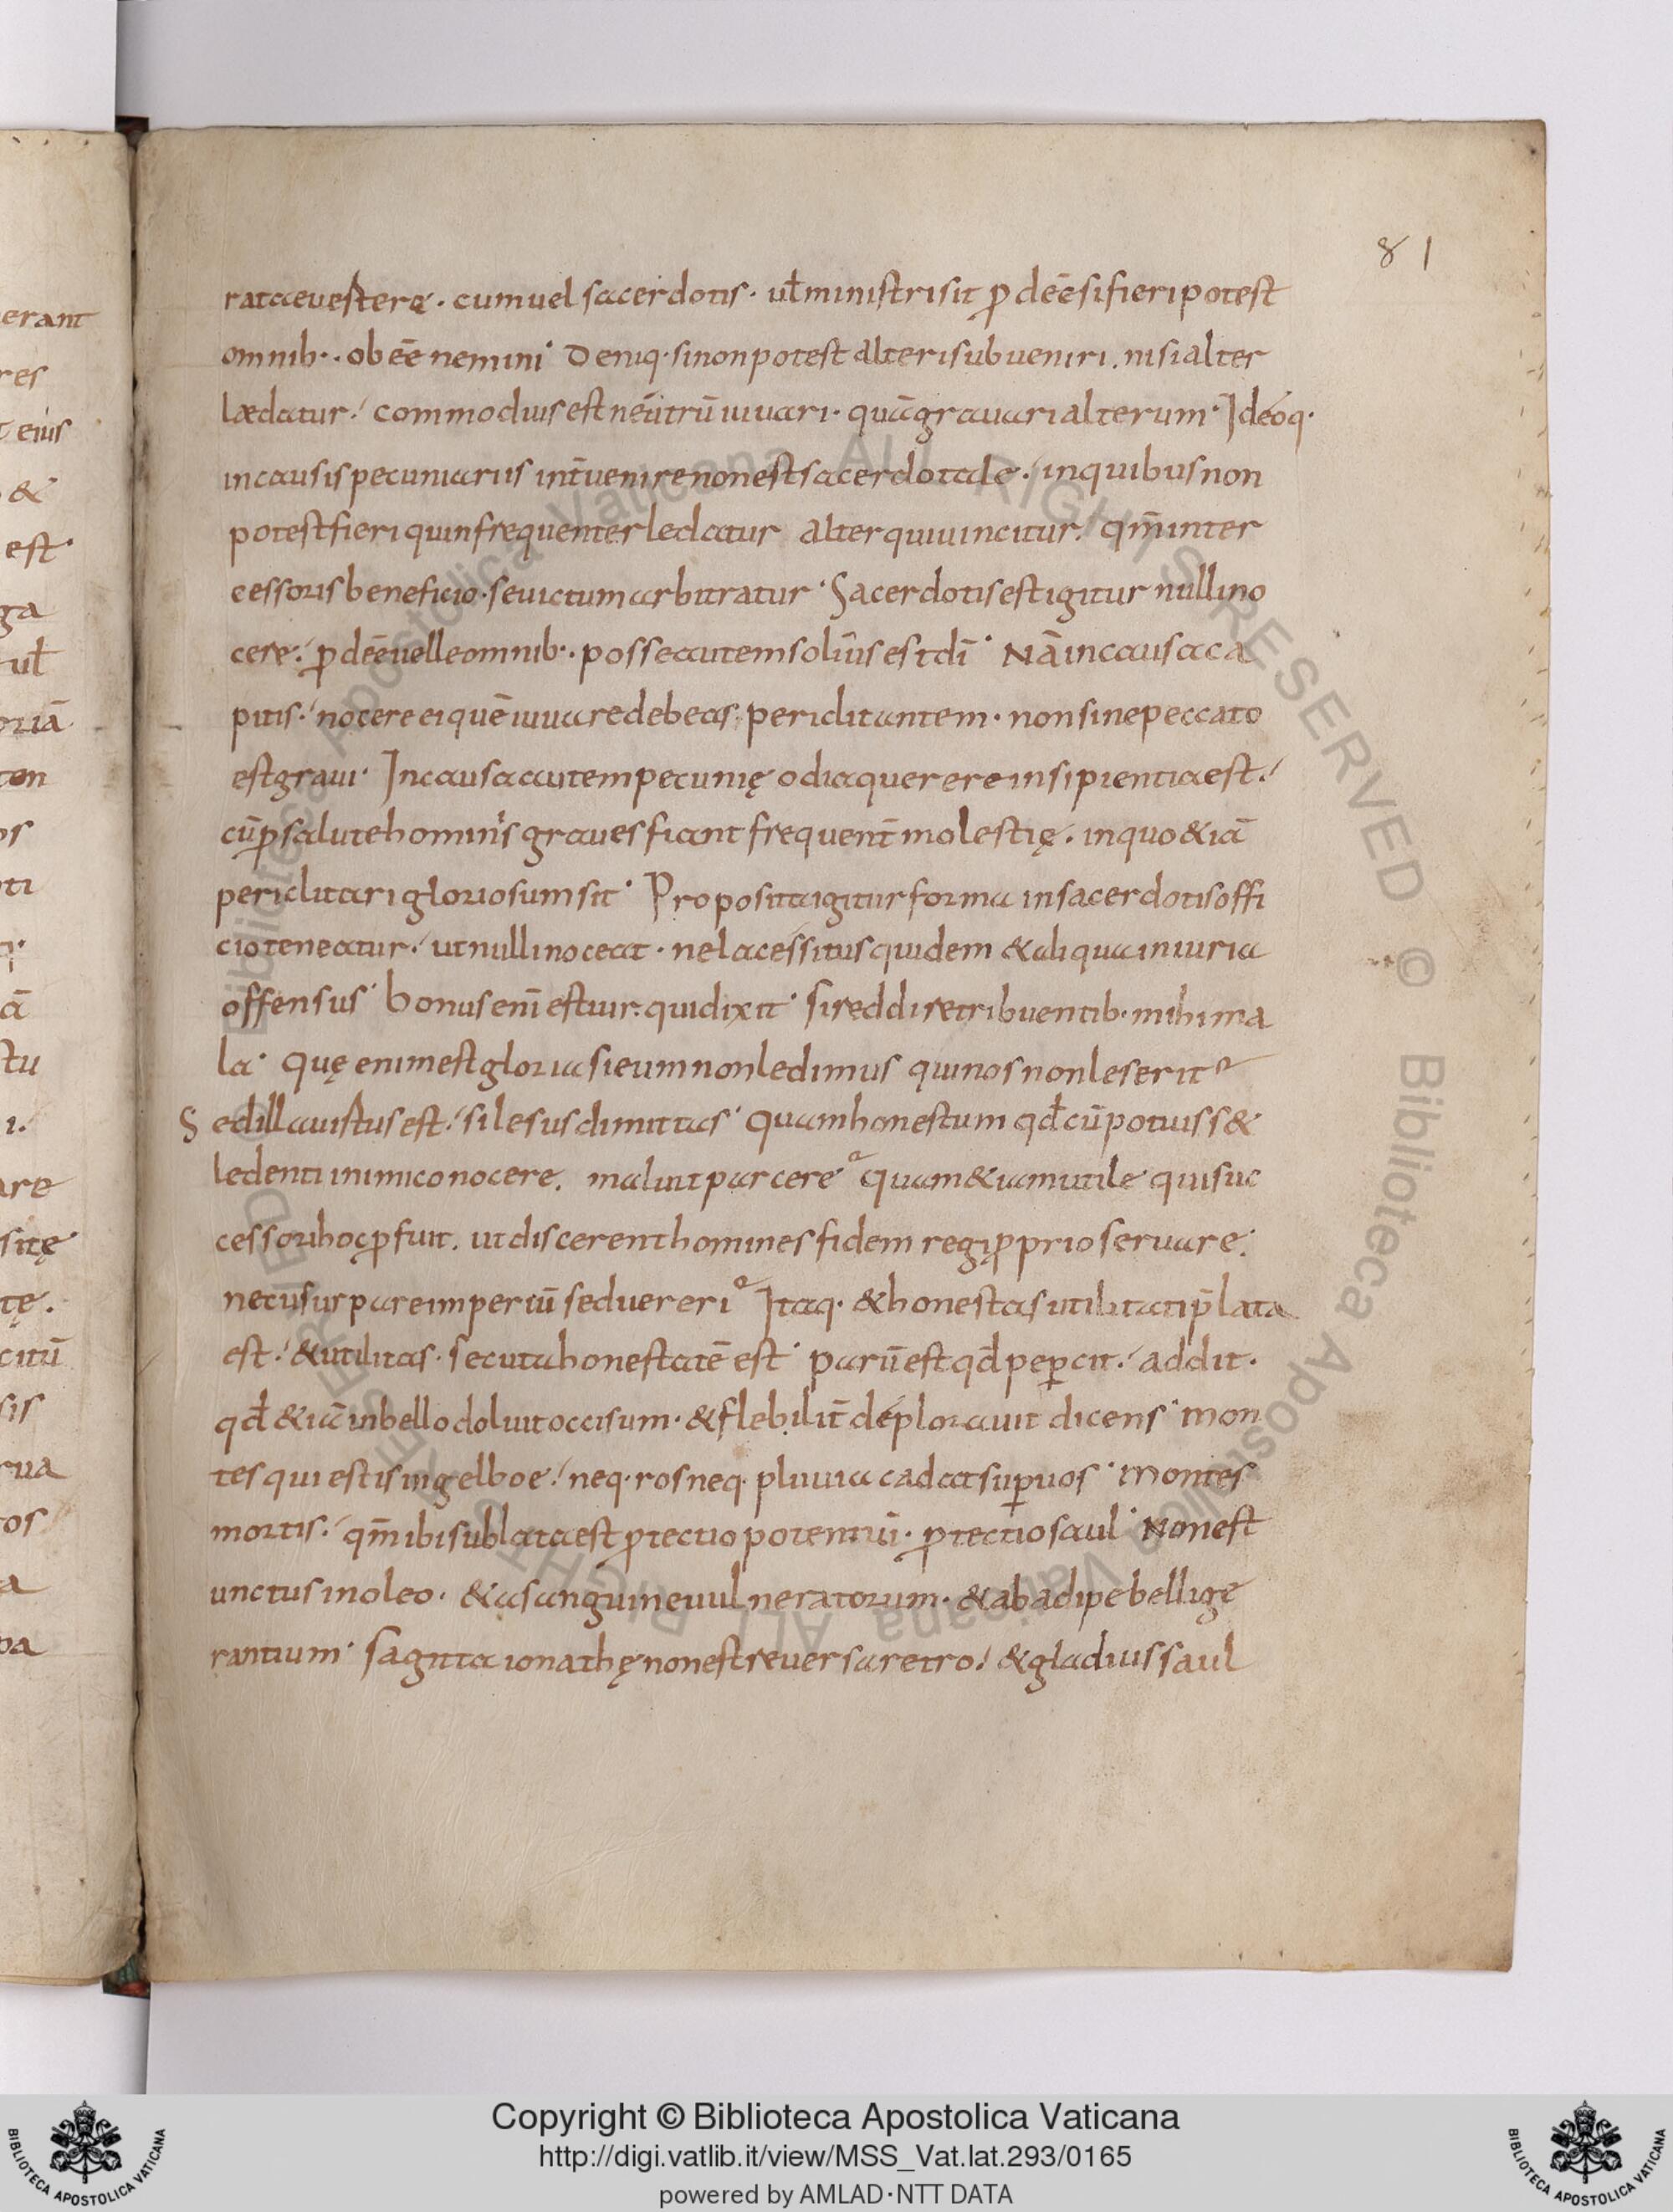 81
rata euestere. cum uel sacerdotis. uł ministri sit ꝓdeḗ si fieri potest
omnib·. obeē nemini· Deniq· si non potest alteri subueniri. nisi alter
lædatur. commodius est neutrū iuuari. quā grauari alterum· Ideoq·
in causis pecuniariis int̄uenire non est sacerdotale. in quibus non
potest fieri quin frequenter ledatur alter qui uincitur. qm̄ inter
cessoris beneficio. se uictum arbitratur· Sacerdotis est igitur nulli no
cere. ꝓdeē uelle omnib·. posse autem solius est dī· Nā in causa ca
pitis. nocere ei quē iuuare debeas periclitantem. non sine peccato
est graui· In causa autem pecunię odia querere insipientia est.
cū ꝓ salute hominis graues fiant frequent̄ molestię. in quo & iā
periclitari gloriosum sit· Proposita igitur forma in sacerdotis offi
cio teneatur. ut nulli noceat. ne lacessitus quidem & aliqua iniuria
offensus· bonus enī est uir. qui dixit· si reddi retribuentib· mihi ma
la· Quę enim est gloria si eum non ledimus qui nos non leserit?
Sed illa uistus est. si lesus dimittas· Quam honestum qđ cū potuiss&
ledenti inimico nocere. maluit parcere? Quam & iam utile qui suc
cessori hoc ꝓfuit. ut discerent homines fidem regi ꝓprio seruare.
nec usurpare imperiū sed uereri? Itaq· & honestas utilitati p̄lata
est. & utilitas. secuta honestatē est· parū est qđ peꝑcit. addit.
qđ & iā in bello doluit occisum. & flebilit̄ deplorauit dicens· mon
tes qui estis in gelboe. neq· ros neq· pluuia cadat suꝑ uos· montes
mortis. qm̄ ibi sublata est ꝓtectio potentiū. ꝓtectio saul· Non est
unctus in oleo. & a sanguine uulneratorum. & ab adipe bellige
rantium· sagitta ionathę non est reuersa retro. & gladius saul
erant
res
eius
&
est·
ga
uł
oriā
ten
os
ti
ā
stu
i.
are
sitę
tę.
citū
sis
rua
tos
a
pa
Copyright © Biblioteca Apostolica Vaticana
http://digi.vatlib.it/view/MSS_Vat.lat.293/0165
powered by AMLAD·NTT DATA
BIBLIOTECA APOSTOLICA VATICANA
BIBLIOTECA APOSTOLICA VATICANA